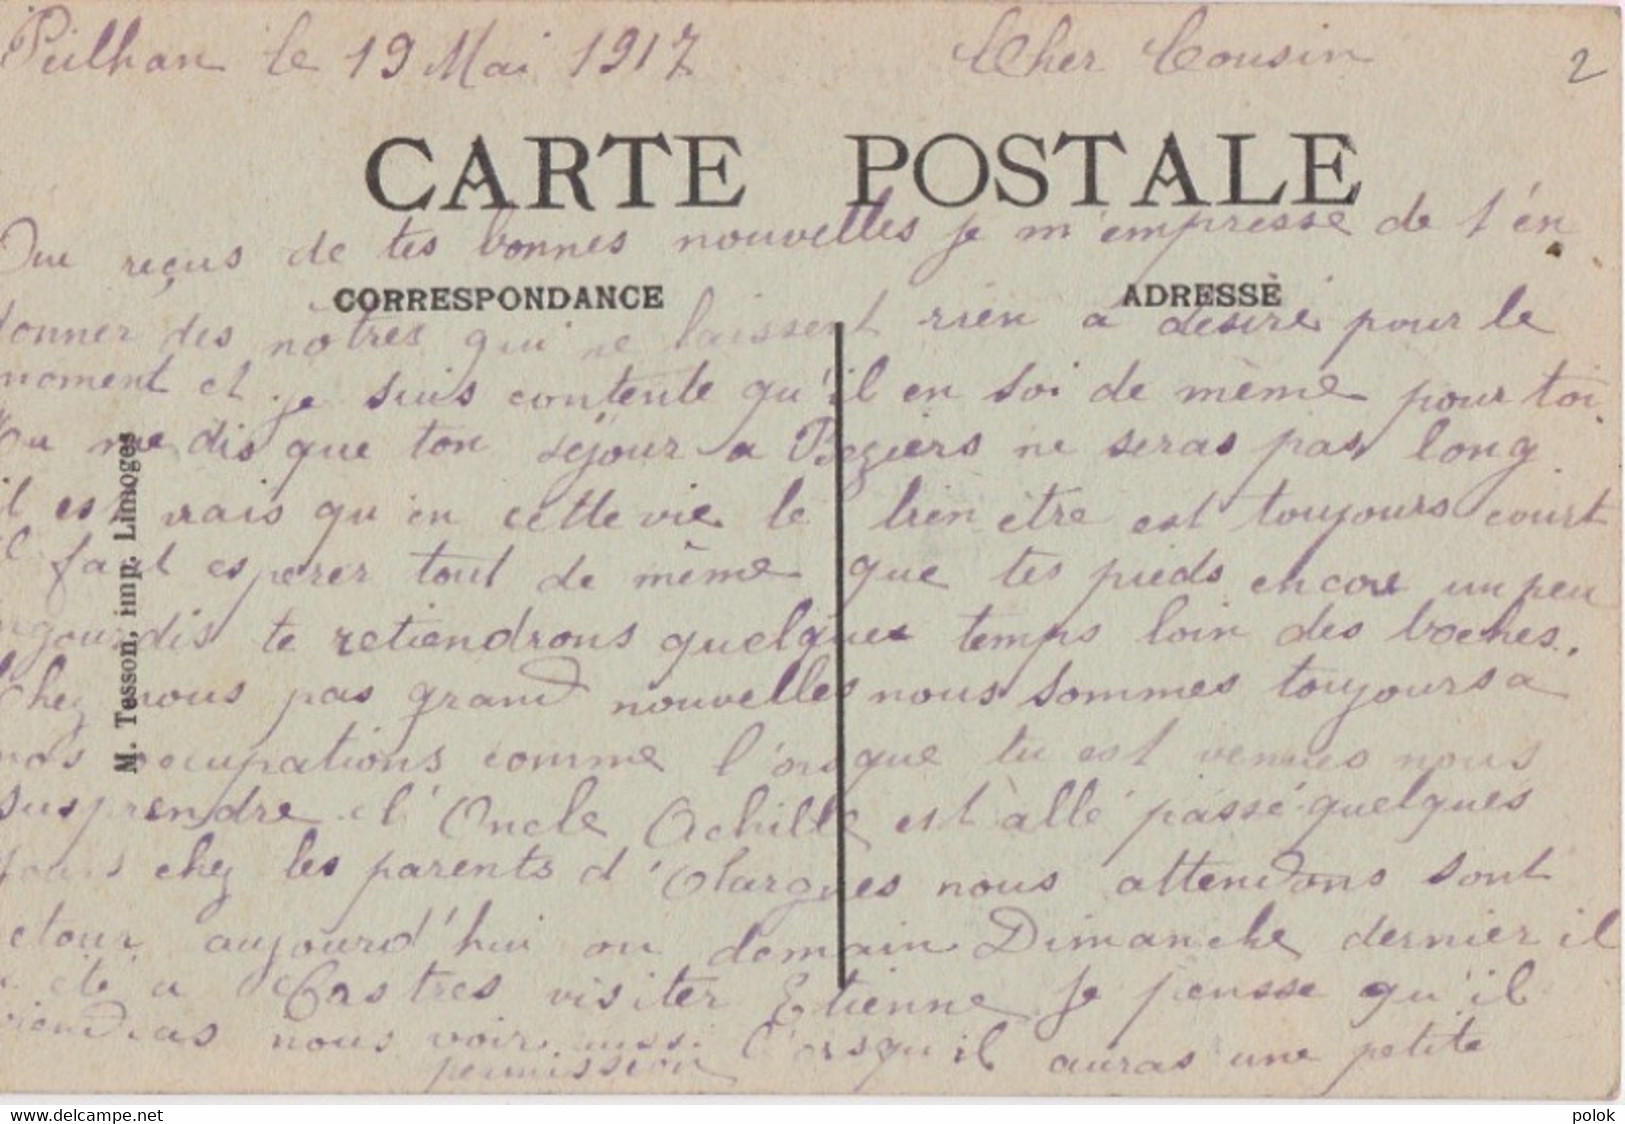 Puilhan le 19 Mai 1917 Cher Cousin 2
CARTE POSTALE
reçus de tes bonnes nouvelles je m'empresse de t'en
CORRESPONDANCE ADRESSE
donner des nôtres qui ne laissent rien a desiré pour le
moment et je suis contente qu'il en soi de même pour toi.
Tu me dis que ton séjour a Beziers ne seras pas long.
il est vrais qu'en cette vie le bien être est toujours court
il faut esperer tout de même que tes pieds encore un peu
engourdis te retiendrons quelques temps loin des boches.
Chez nous pas grand nouvelles nous sommes toujours a
nos occupations comme l'orsque tu est venues nous
susprendre. l'Oncle Achille est allé passé quelques
jours chez les parents d'Olargues nous attendons sont
retour aujourd'hui ou demain Dimanche dernier il
a été a Castres visiter Etienne je pensse qu'il
viendras nous voir aussi l'orsqu'il auras une petite
permission
M. Tesson, imp. Limoges
www.delcampe.net polok